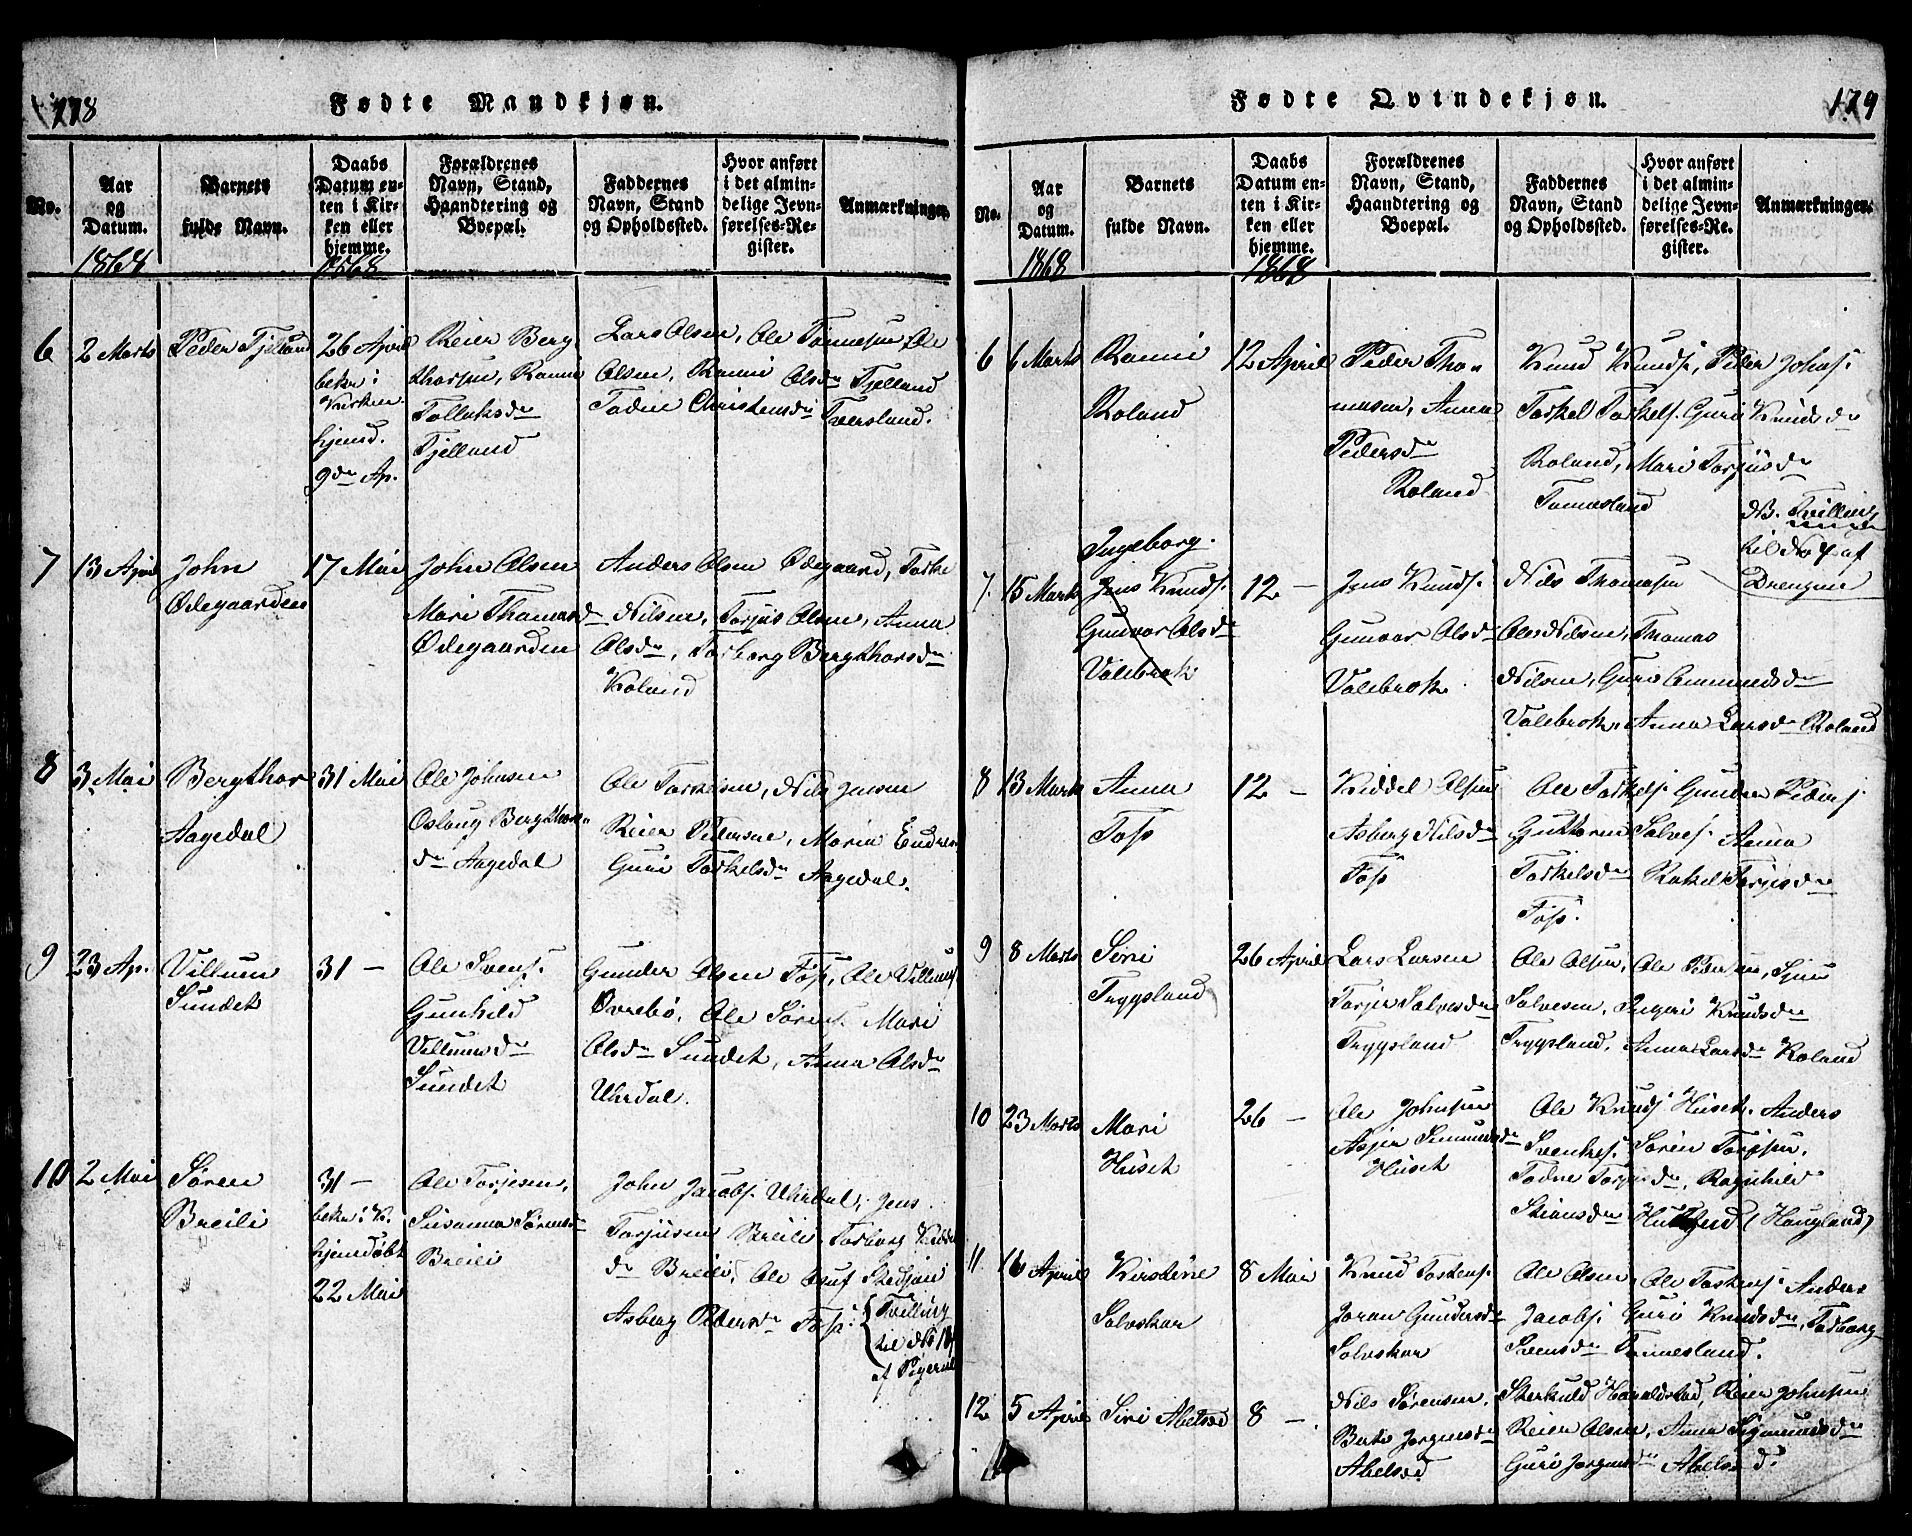 178
Fødte Mandkjøn.
No.
Aar og Datum.
Barnets fulde Navn.
Daabs Datum enten i Kirken eller hjemme.
Forældrenes Navn, Stand, Haandtering og Boepæl.
Faddernes Navn, Stand og Opholdssted.
Hvor anført i det almindelige Jevnførelses-Register.
Anmærkninger.
1868
1868
6
2 Marts
Peder Fjelland
26 April
bekr i
Kirken
hjemd.
9de Ap.
Reier Berg
thorsen, Ranni
Tollaksdr
Fjelland
Lars Olsen, Ole Tønnesen, Ole
Olsen, Ranni Olsdr Fjelland
Todne Christensdr Tversland.
7
13 April
John
Ødegaarden
17 Mai
John Olsen
Mari Thomasdr
Ødegaarden
Anders Olsen Ødegaard, Torkel
Nilsen, Torjus Olsen, Anna
Olsdr, Torborg Bergthorsdr
Roland
8
3 Mai
Bergthor
Aagedal
31 Mai
Ole Johnsen
Oslaug Bergthors
dr Aagedal
Ole Torkelsen, Nils Jensen
Reier Pedersen, Maria Endres
Guri Torkelsdr Aagedal.
9
23 Ap.
Villum
Sundet
31 —
Ole Svens.
Gunhild
Villumsdr
Sundet
Gunder Olsen Fos, Ole Villums
Øvrebø, Ole Sørens. Mari
Olsdr Sundet, Anna Olsdr
Uhrdal.
10
2 Mai
Søren
Breili
31 —
bekr i K.
hjemdøbt
22 Mai
Ole Torjesen,
Susanna Sørensdr
Breili
John Jacobs. Uhrdal, Jens
Torjusen Breili, Torborg
dr Breili, Ole
Asberg Pedersdr Fos.
Tvilling
til No 13
af Pigerne
179
Fødte Qvindekjøn.
No.
Aar og Datum.
Barnets fulde Navn.
Daabs Datum enten i Kirken eller hjemme.
Forældrenes Navn, Stand, Haandtering og Boepæl.
Faddernes Navn, Stand og Opholdssted.
Hvor anført i det almindelige Jevnførelses-Register.
Anmærkninger.
1868
1868
6
6 Marts
Ranni
Roland
12 April
Peder Tho=
masen, Anna
Pedersdr
Roland
Knud Knuds, Peder Johns.
Torkel Torkels. Guri Knudsdr
Roland, Mari Torjusdr
Tomasland
NB. Tvilling
til No 4 af
Drengene
7.
15 Marts
Ingeborg.
Jens Knuds.
Gunvor Olsdr
Valebrok
12 —
Jens Knuds.
Gunvor Olsdr
Valebrok
Nils Thomasen
Ole Nilsen, Thomas
Nilsen, Guri Ommundsdr
Valebrok, Anna Larsdr Roland
8
13 Marts
Anna
Fos
12 —
Kiddel Olsen
Asberg Nilsdr
Fos
Ole Torkels. Gunder Peders
Guttorm Salves. Anna
Torkelsdr Rakel Torjusdr
Fos.
9
8 Marts
Siri
Trygsland
26 April
Lars Larsen
Torjer Salvesdr
Trygsland
Ole Olsen, Ole Pedersen, Sjur
Salvesen, Ingeri Knudsdr
Trygsland, Anna Larsdr Roland
10
23 Marts
Mari
Huset
26 —
Ole Johnsen
Asjer Simundsdr
Huset
Ole Knuds. Huset, Anders
Svenkes. Søren Torjesen,
Todne Torjusdr, Ragnhild
Stiansdr (Haugland)
11
16 April
Kirstine
Solvskar
8 Mai
Knud Torkens.
Joran Gundersdr
Solvskar
Ole Olsen, Ole Torkens. Anders
Jacobs. Guri Knudsdr, Torborg
Svensdr Finnesland.
12
5 April
Siri Abelsed
8 —
Nils Sørensen,
Berte Jørgensdr
Abelsed
Sterkuld Haraldstad, Reier Johnsen
Reier Olsen, Anna Sigmundsdr
Guri Jørgensdr Abelsed.